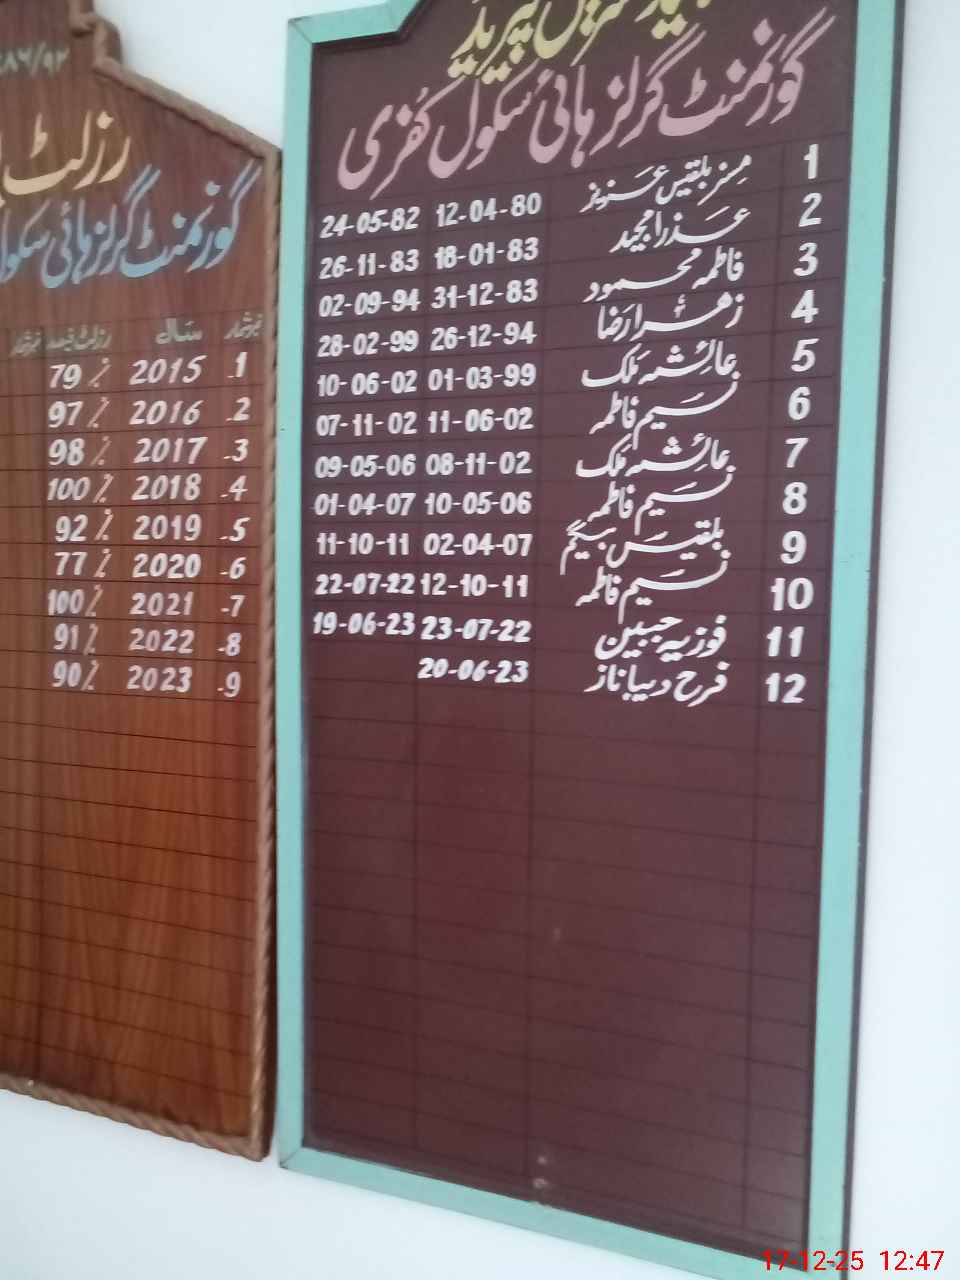 پیریڈ
گورنمنٹ گرلز ہائی سکول کفری
1 مسز بلقیس عزیز 12-04-80 24-05-82
2 عذرا مجید 18-01-83 26-11-83
3 فاطمہ محمود 31-12-83 02-09-94
4 زھرا رضا 26-12-94 28-02-99
5 عائشہ ملک 01-03-99 10-06-02
6 نسیم فاطمہ 11-06-02 07-11-02
7 عائشہ ملک 08-11-02 09-05-06
8 نسیم فاطمہ 10-05-06 01-04-07
9 بلقیس بیگم 02-04-07 11-10-11
10 نسیم فاطمہ 12-10-11 22-07-22
11 فوزیہ جبین 23-07-22 19-06-23
12 فرح دیبا ناز 20-06-23
رزلٹ
گورنمنٹ گرلز ہائی سکول
نمبرشمار سال رزلٹ فیصد نمبرشمار
1- 2015 79 %
2- 2016 97 %
3- 2017 98 %
4- 2018 100 %
5- 2019 92 %
6- 2020 77 %
7- 2021 100 %
8- 2022 91 %
9- 2023 90 %
17-12-25 12:47